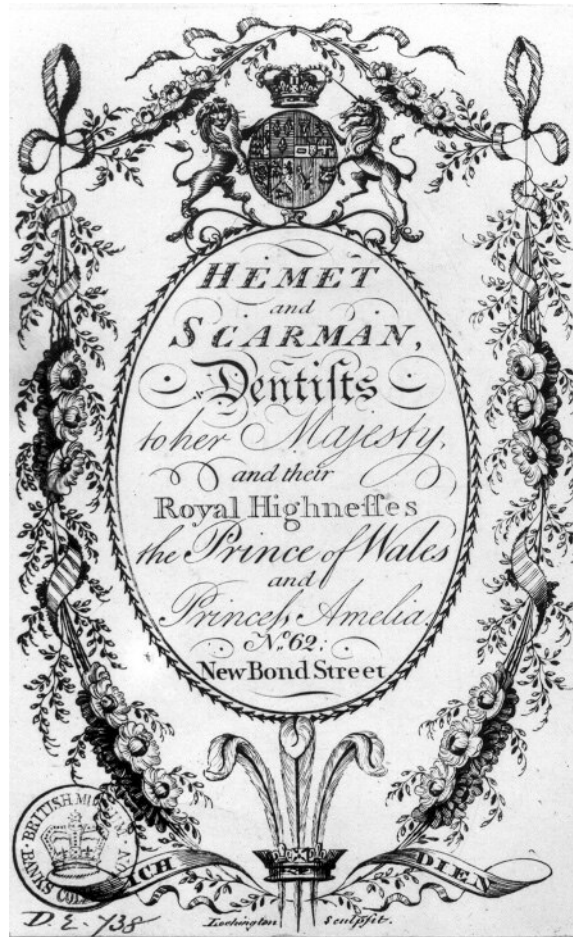 HEMET
and
SCARMAN,
Dentiſts
to her Majesty,
and their
Royal Highneſſes
the Prince of Wales
and
Princeſs Amelia.
No. 62.
New Bond Street
ICH DIEN
BRITISH MUSEUM
BANKS COLLECTION
D.2-738
Lockington Sculpſit.